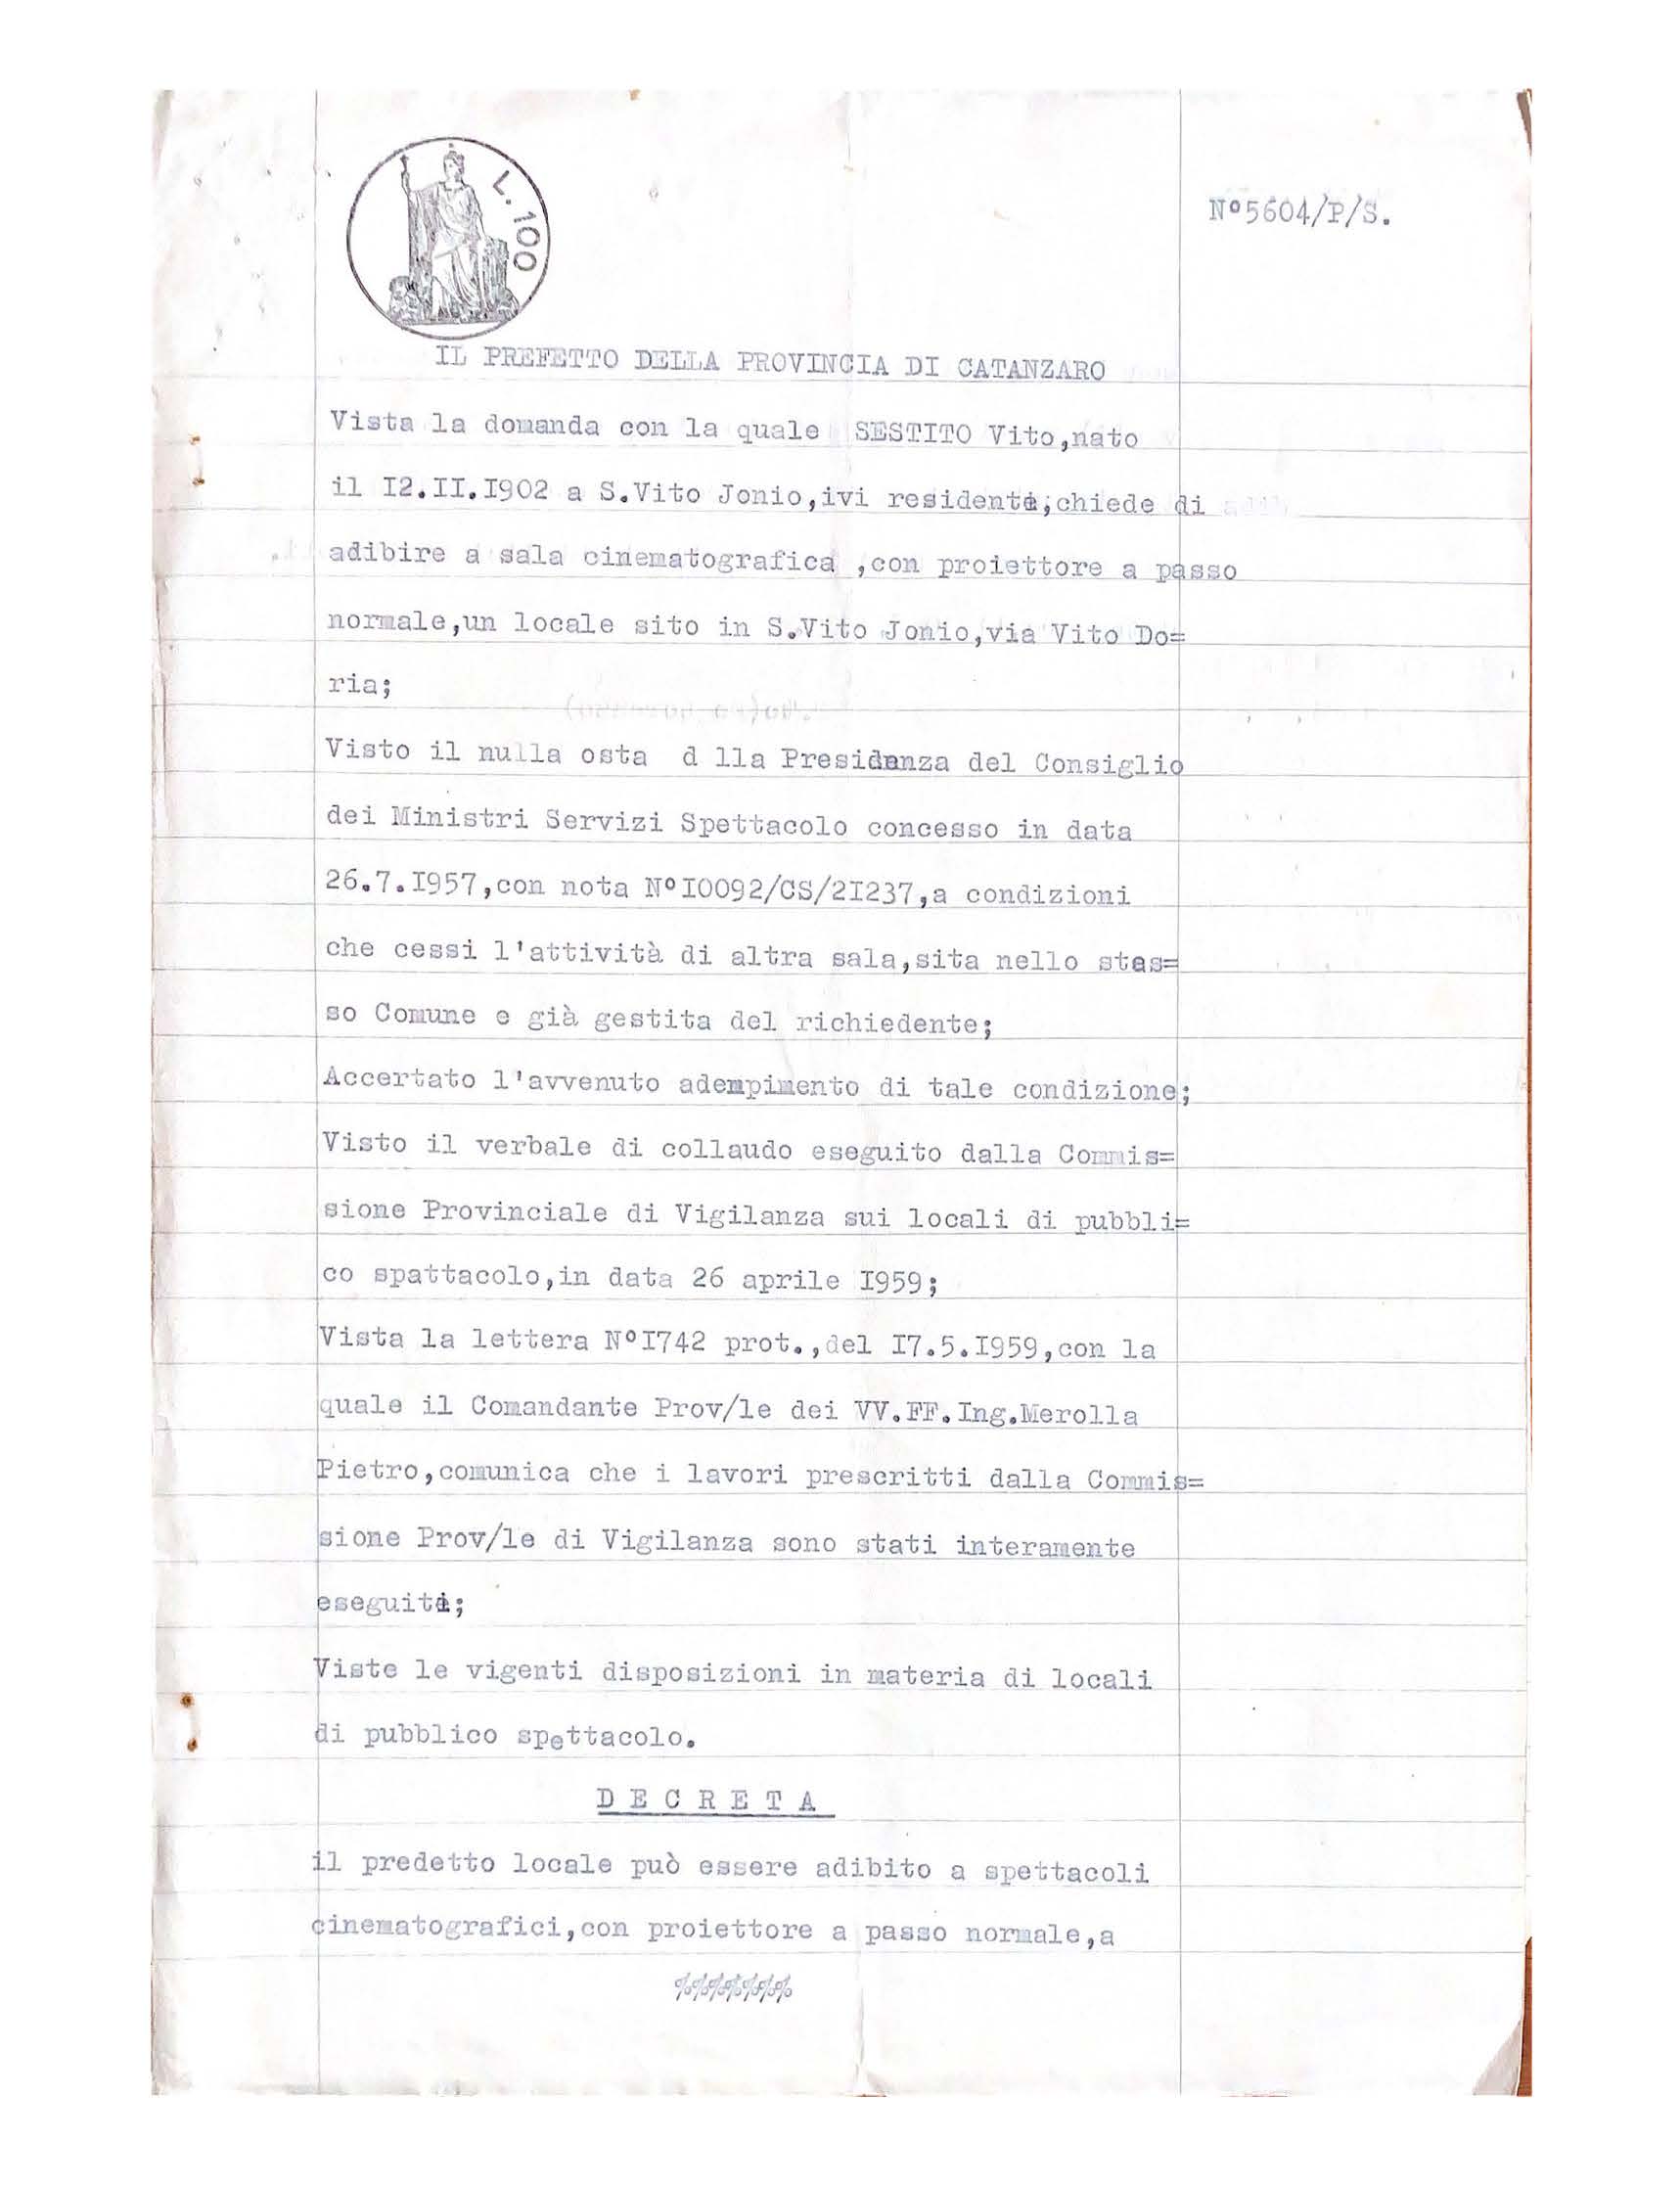 L. 100
N°5604/P/S.
IL PREFETTO DELLA PROVINCIA DI CATANZARO
Vista la domanda con la quale SESTITO Vito,nato
il I2.II.I902 a S.Vito Jonio,ivi residente;chiede di
adibire a sala cinematografica ,con proiettore a passo
normale,un locale sito in S.Vito Jonio,via Vito Do=
ria;
Visto il nulla osta d lla Presidenza del Consiglio
dei Ministri Servizi Spettacolo concesso in data
26.7.I957,con nota N°I0092/CS/2I237,a condizioni
che cessi l'attività di altra sala,sita nello stes=
so Comune e già gestita del richiedente;
Accertato l'avvenuto adempimento di tale condizione;
Visto il verbale di collaudo eseguito dalla Commis=
sione Provinciale di Vigilanza sui locali di pubbli=
co spattacolo,in data 26 aprile I959;
Vista la lettera N°I742 prot.,del I7.5.I959,con la
quale il Comandante Prov/le dei VV.FF.Ing.Merolla
Pietro,comunica che i lavori prescritti dalla Commis=
sione Prov/le di Vigilanza sono stati interamente
eseguiti;
Viste le vigenti disposizioni in materia di locali
di pubblico spettacolo.
D E C R E T A
il predetto locale può essere adibito a spettacoli
cinematografici,con proiettore a passo normale,a
%%%%%%%